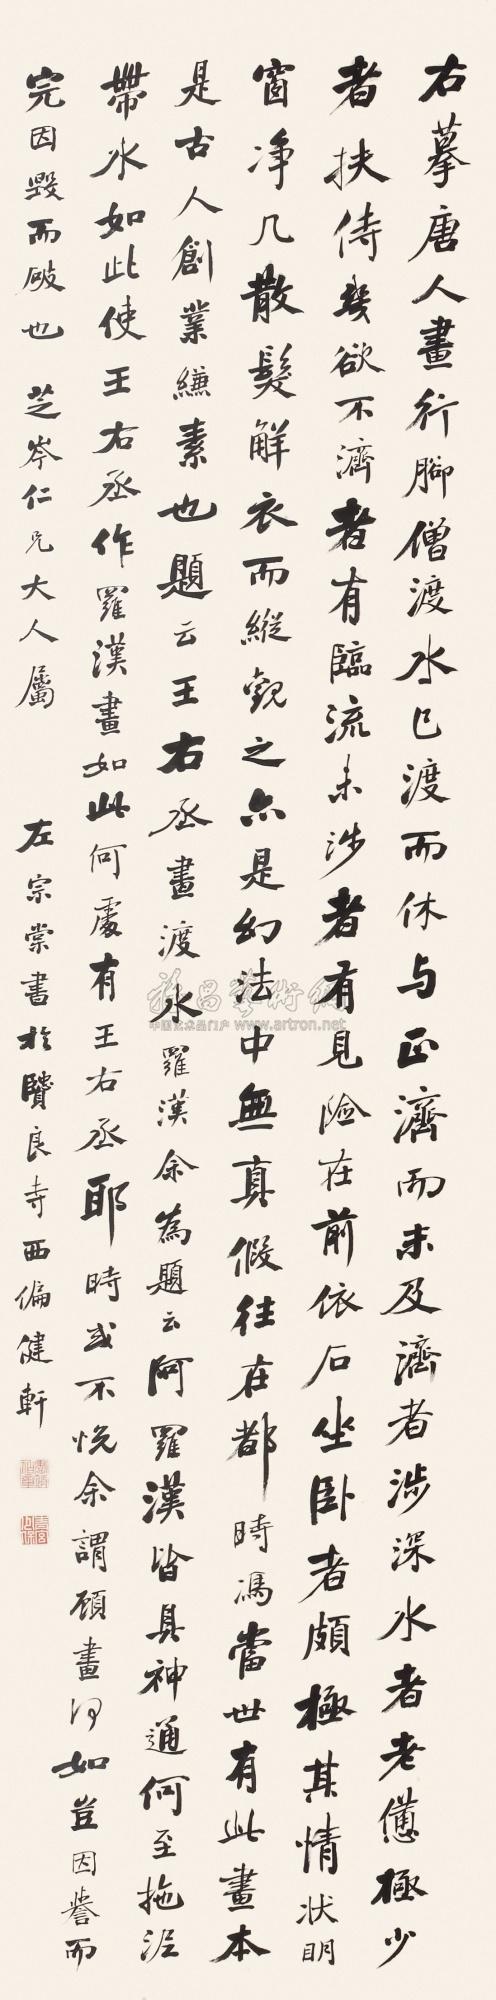 右摹唐人畫行腳僧渡水已渡而休与正濟而未及濟者涉深水者老憊極少
者扶侍幾欲不濟者有臨流未涉者有見險在前依石坐卧者頗極其情狀明
窗净几散髮解衣而縱觀之亦是幻法中無真假往在都時馮當世有此畫本
是古人創業縑素也題云王右丞畫渡水羅漢余為題云阿羅漢皆具神通何至拖泥
帶水如此使王右丞作羅漢畫如此何處有王右丞耶時或不悦余謂顧畫何如豈因譽而
完因毀而破也 芝岑仁兄大人屬 左宗棠書於賢良寺西偏健軒
中国艺术品门户 www.artron.net